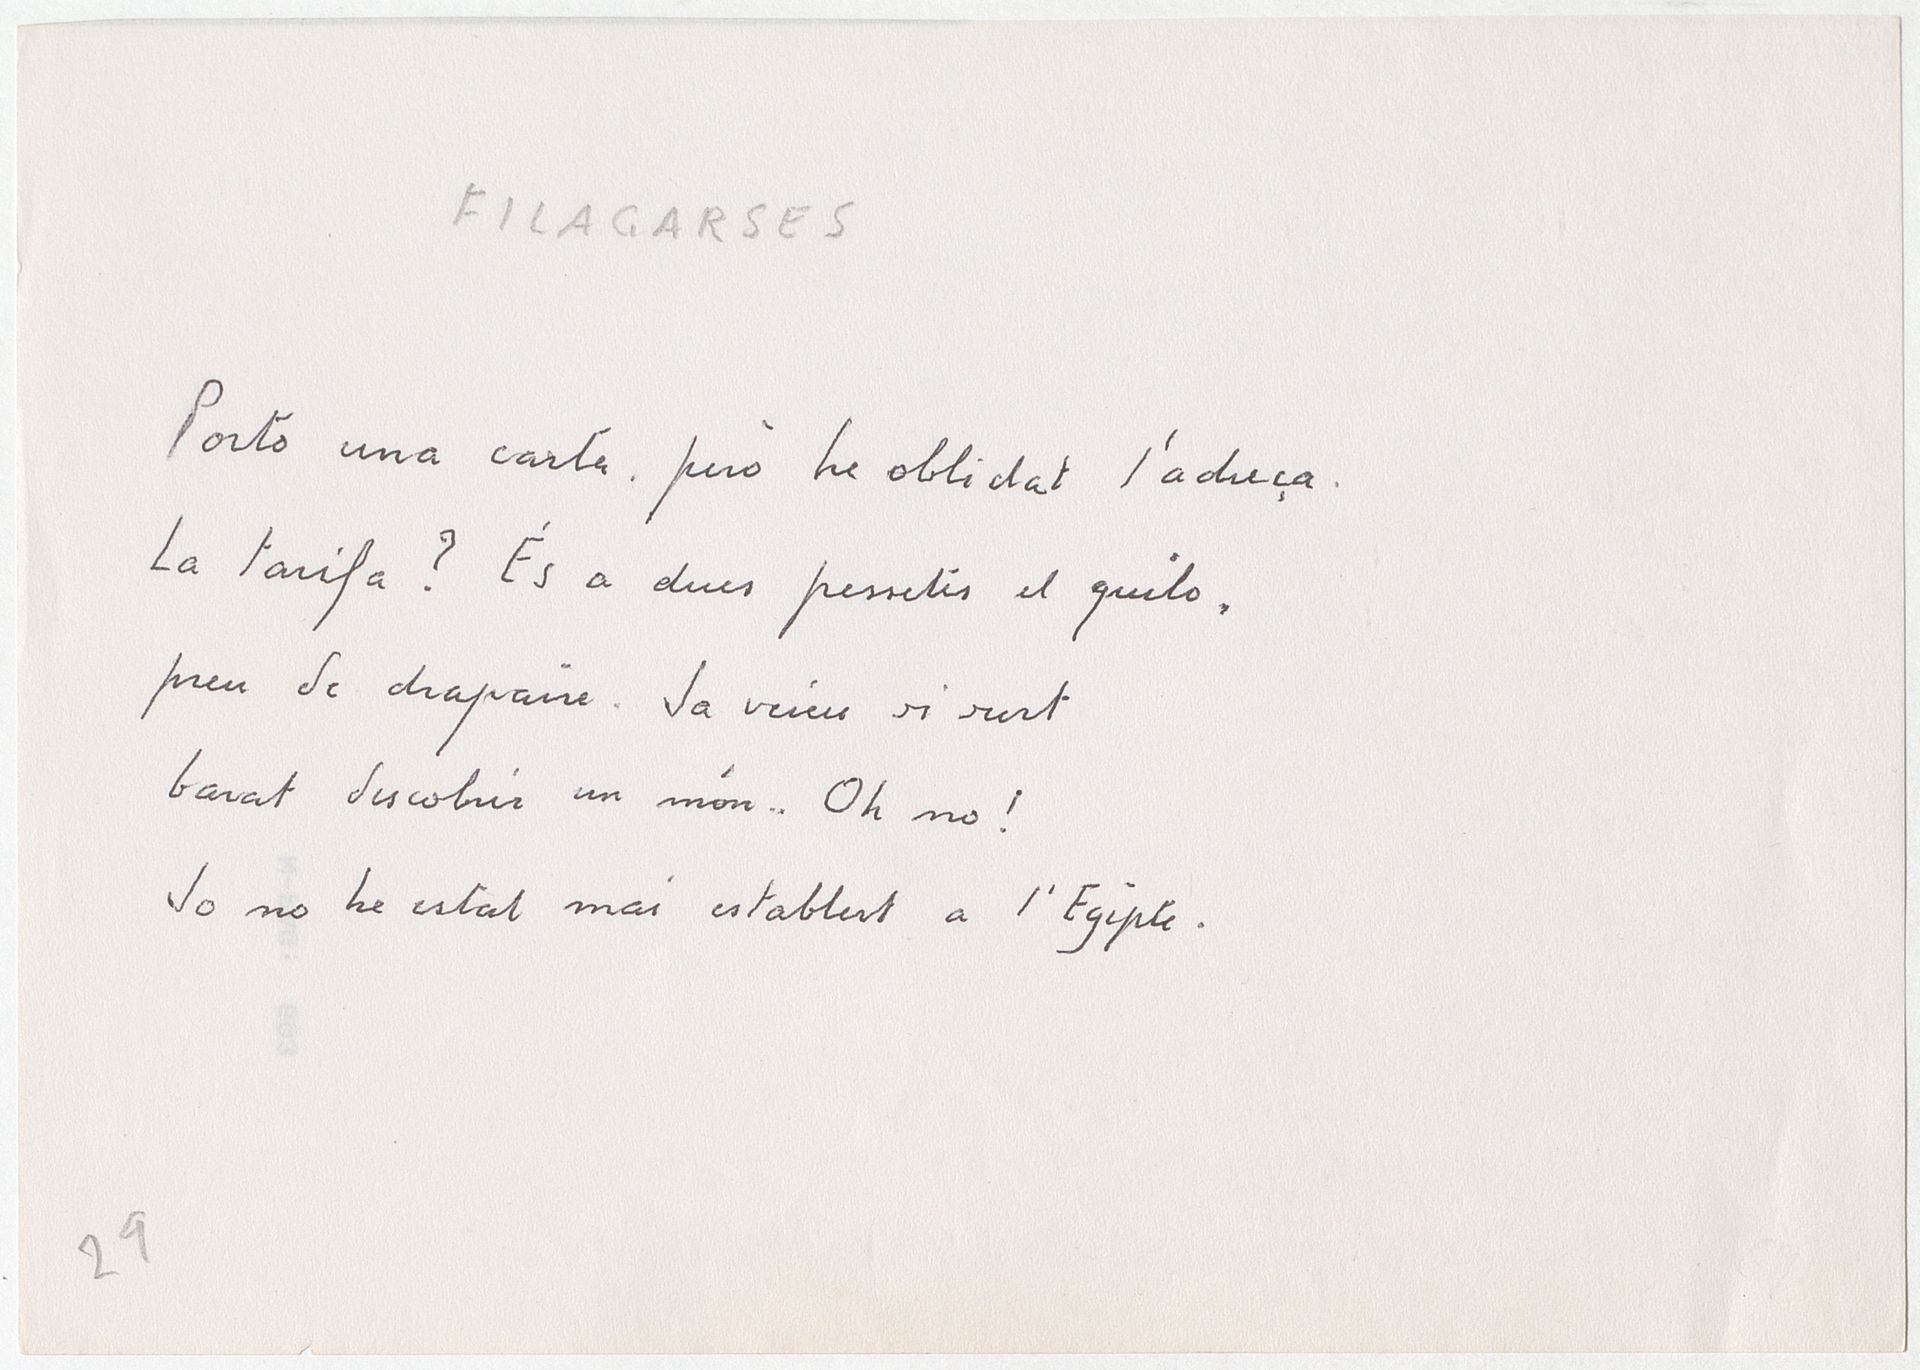 FILAGARSES
Porto una carta, però he oblidat l'adreça.
La tarifa? És a dues pessetes el quilo,
preu de drapaire. Ja veieu si surt
barat descobrir un món.. Oh no!
Jo no he estat mai establert a l'Egipte.
29